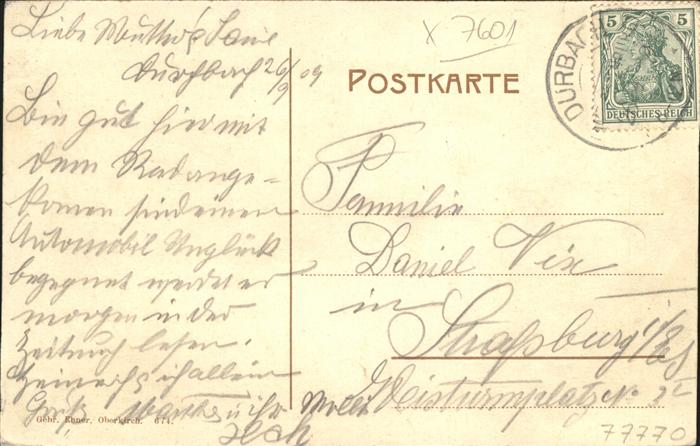 Liebe Mutter &
Durchbach 26/9 09
Bin gut hier mit
dem Rad ange-
komen sind einem
Automobil Unglück
begegnet werdet es
morgen in der
Zeitung lesen.
ich allein
Gruß
X 7601
POSTKARTE
DURBACH
5 5
DEUTSCHES REICH
Familie
Daniel Vix
in
Straßburg i/Els
Weisturmplatz No
Gebr. Ebner, Oberkirch. 674.
77770